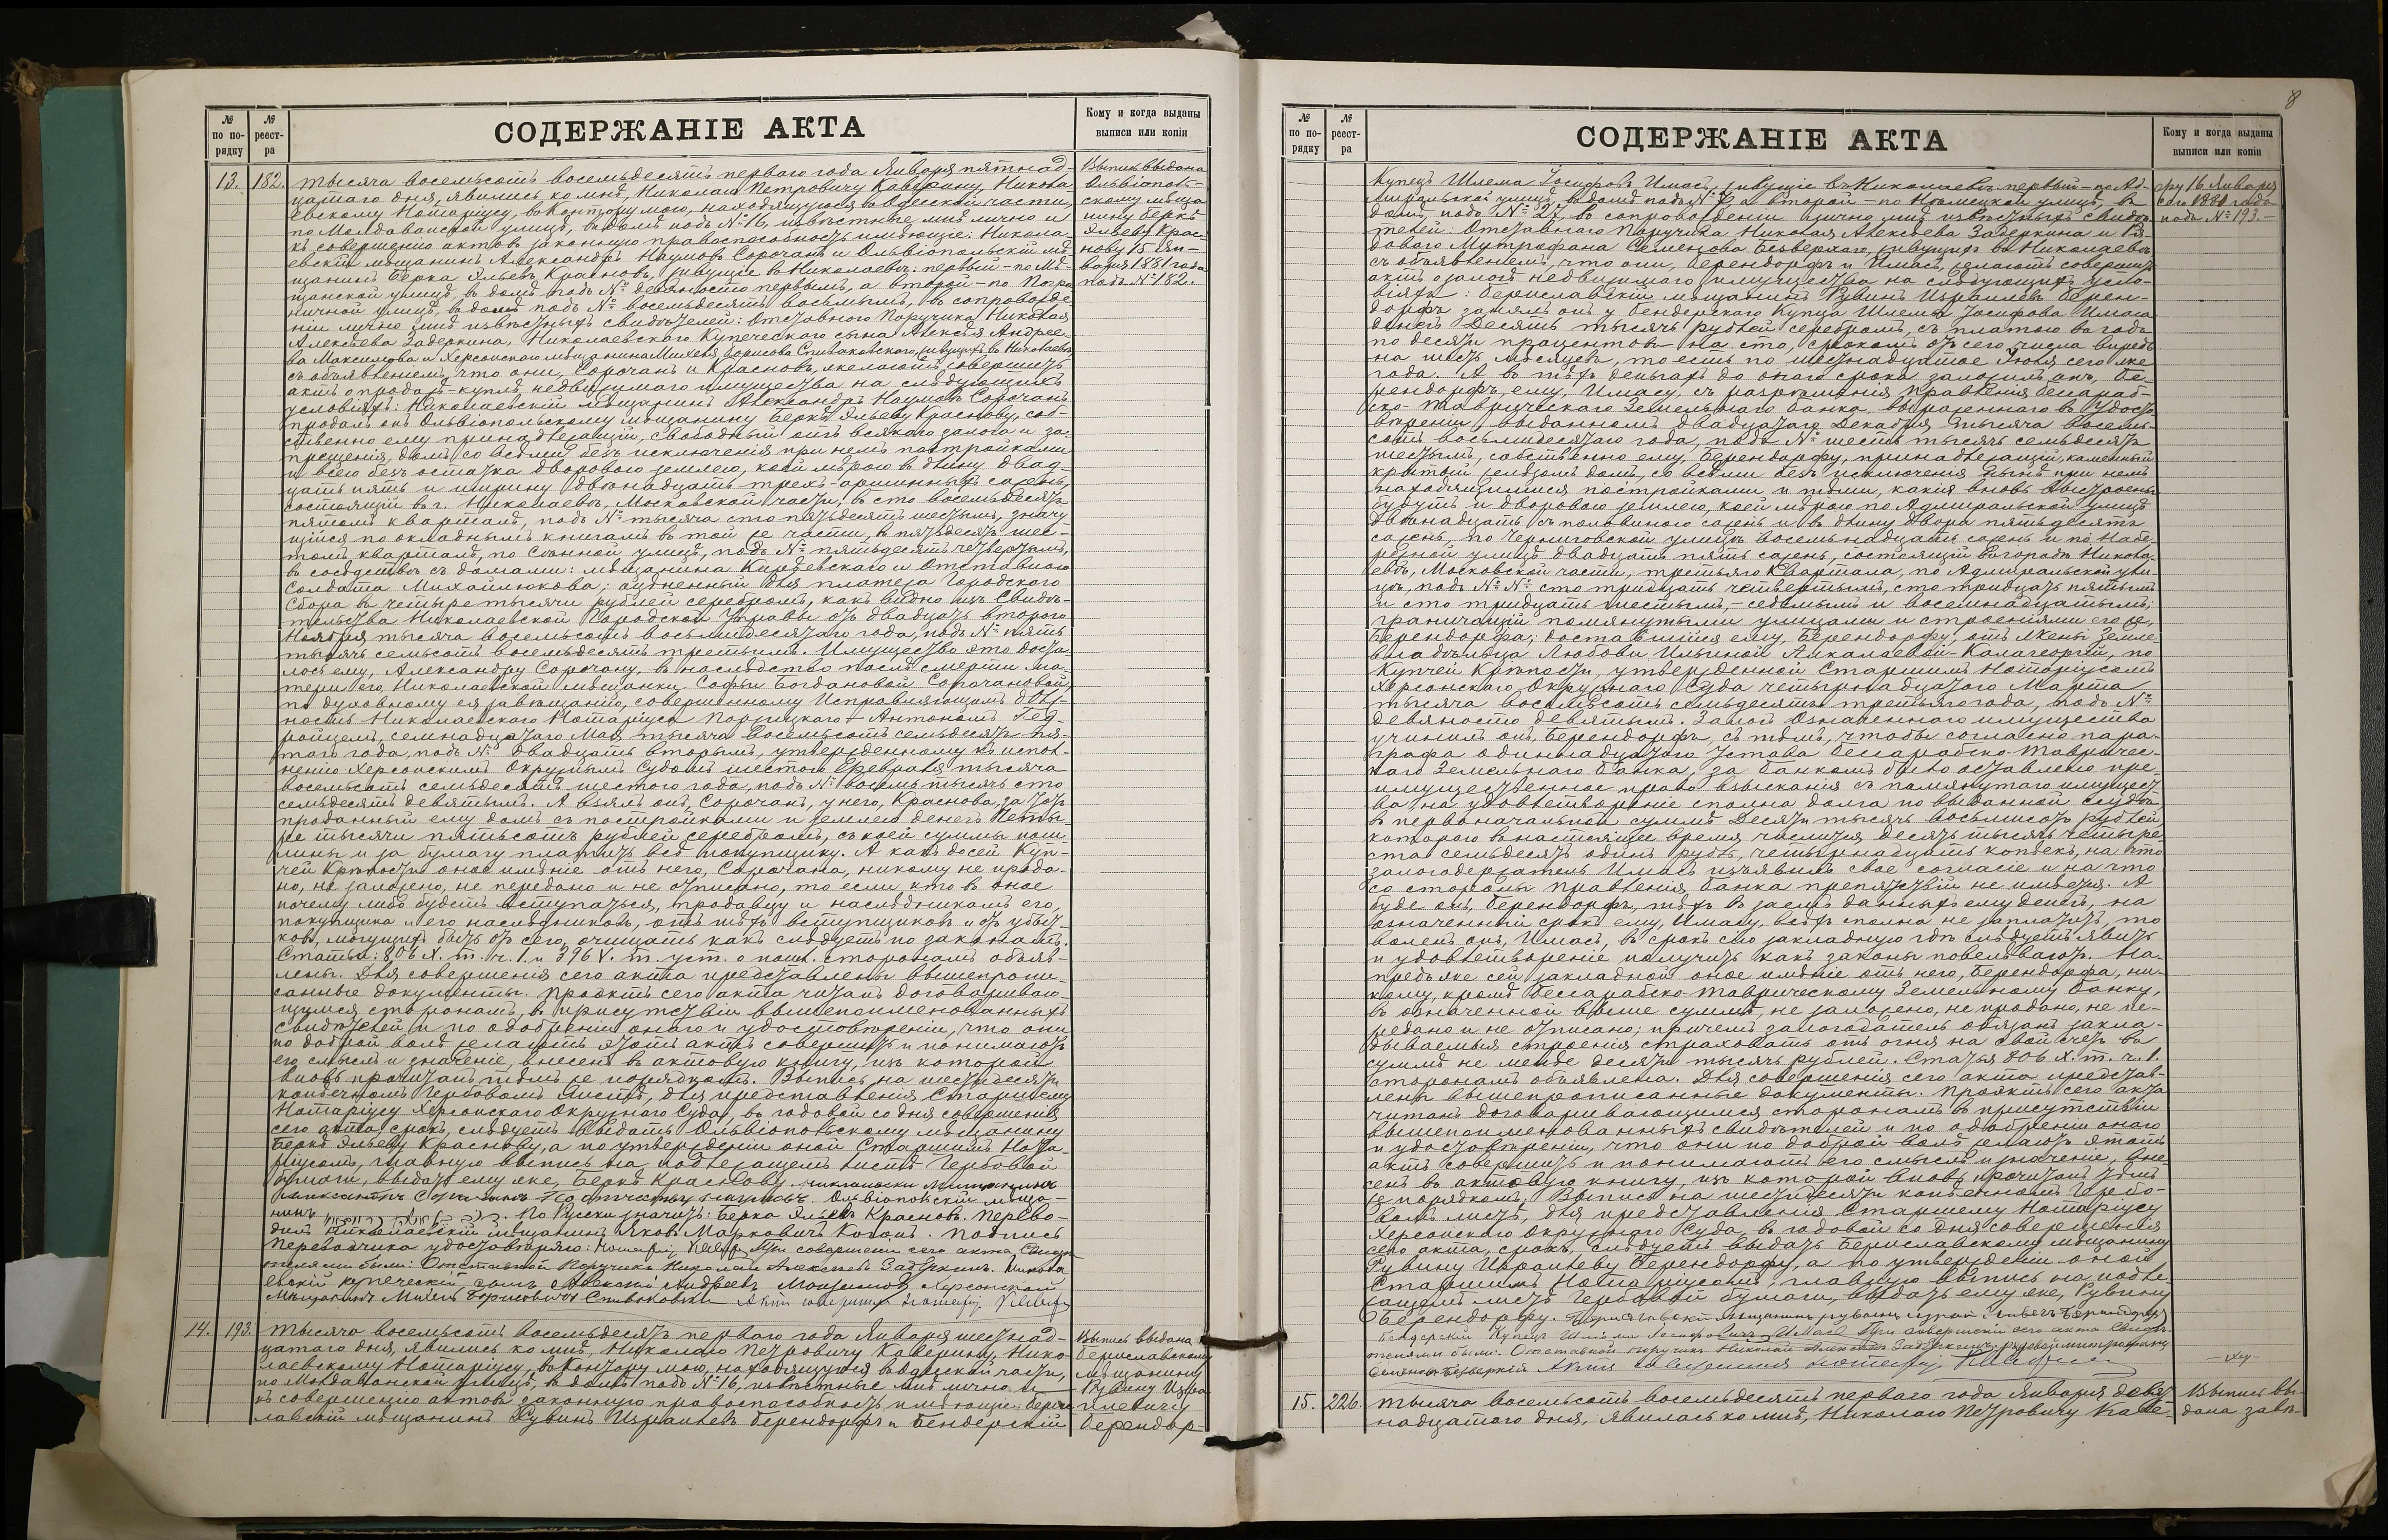 № по порядку
№ реестра
СОДЕРЖАНІЕ АКТА
Кому и когда выданы выписи или копіи
13. 182.
Тысяча восемьсотъ восемьдесятъ перваго года Января пятнад-
цатаго дня, явились ко мнѣ, Николаю Петровичу Каверину, Никола-
евскому Нотаріусу, въ Контору мою, находящуюся въ Одесской части,
по Молдаванской улицѣ, въ домѣ подъ № 16, извѣстные мнѣ лично и
къ совершенію актовъ законную правоспособность имѣющіе: Никола-
евскій мѣщанинъ Александръ Наумовъ Сорочанъ и Ольвіопольскій мѣ-
щанинъ Берка Эльевъ Красновъ, живущіе въ Николаевѣ: первый - по Мѣ-
щанской улицѣ, въ домѣ подъ № девяносто первымъ, а второй - по Погра-
ничной улицѣ, въ домѣ подъ № восемьдесятъ восьмымъ, въ сопровожде-
ніи лично мнѣ извѣстныхъ свидѣтелей: Отставного Поручика Николая
Алексѣева Задеркина, Николаевскаго Купеческаго сына Алексѣя Андрее-
ва Максимова и Херсонскаго мѣщанина Михеля Борисова Спиваковскаго, живущихъ въ Николаевѣ
съ объявленіемъ, что они, Сорочанъ и Красновъ, желаютъ совершить
актъ о продажѣ-куплѣ недвижимаго имущества на слѣдующихъ
условіяхъ: Николаевскій мѣщанинъ Александръ Наумовъ Сорочанъ
продалъ онъ Ольвіопольскому мѣщанину Беркѣ Эльеву Краснову, соб-
ственно ему принадлежащій, свободный отъ всякаго залога и за-
прещенія, домъ со всѣми безъ исключенія при немъ постройками
и всею безъ остатка дворовою землею, коей мѣрою въ длину двад-
цать пять и ширину двѣнадцать трехъ-аршинныхъ сажень,
состоящій въ г. Николаевѣ, Московской части, въ сто восемьдесятъ
пятомъ кварталѣ, подъ № тысяча сто пятьдесятъ шестымъ, значу-
щійся по окладнымъ книгамъ въ той же части, въ пятьдесятъ шес-
томъ кварталѣ, по Сѣнной улицѣ, подъ № пятьдесятъ четвертымъ,
въ сосѣдствѣ съ домами: мѣщанина Кирѣевскаго и Отставного
Солдата Михайлюкова; оцѣненный для платежа Городского
Сбора въ четыре тысячи рублей серебромъ, какъ видно изъ Свидѣ-
тельства Николаевской Городской Управы отъ двадцать второго
Ноября тысяча восемьсотъ восьмидесятаго года, подъ № пять
тысячъ семьсотъ восемьдесятъ третьимъ. Имущество это доста-
лось ему, Александру Сорочану, въ наслѣдство послѣ смерти ма-
тери его, Николаевской мѣщанки Софьи Богдановой Сорочановой,
по духовному ея завѣщанію, совершенному Исправляющимъ долж-
ность Николаевскаго Нотаріуса Поржицкаго - Антономъ Гед-
ройцемъ, семнадцатаго Мая тысяча восемьсотъ семьдесятъ пя-
таго года, подъ № двадцать вторымъ, утвержденному къ испол-
ненію Херсонскимъ Окружнымъ Судомъ шестого Февраля тысяча
восемьсотъ семьдесятъ шестого года, подъ № восемь тысячъ сто
семьдесятъ девятымъ. А взялъ онъ, Сорочанъ, у него, Краснова, за тотъ
проданный ему домъ съ постройками и землею денегъ четы-
ре тысячи пятьсотъ рублей серебромъ, съ коей суммы пош-
лины и за бумагу платить всѣ покупщику. А какъ до сей Куп-
чей Крѣпости оное имѣніе отъ него, Сорочана, никому не прода-
но, не заложено, не передано и не отписано, то если кто въ оное
почему либо будетъ вступаться, продавцу и наслѣдникамъ его,
покупщика и его наслѣдниковъ, отъ тѣхъ вступщиковъ и отъ убыт-
ковъ, могущихъ быть отъ сего, очищать какъ слѣдуетъ по законамъ.
Статьи: 806 X. т. ч. 1. и 396 V. т. уст. о пошл. сторонамъ объяв-
лены. Для совершенія сего акта представлены вышепропи-
санные документы. Проэктъ сего акта читанъ договариваю-
щимся сторонамъ, въ присутствіи вышепоименованныхъ
свидѣтелей и по одобреніи онаго и удостовѣреніи, что они
по доброй волѣ желаютъ этотъ актъ совершить и понимаютъ
его смыслъ и значеніе, внесенъ въ актовую книгу, изъ которой
вновь прочитанъ тѣмъ же порядкомъ. Выпись на шестидесяти
копѣечномъ Гербовомъ Листѣ, для представленія Старшему
Нотаріусу Херсонскаго Окружнаго Суда, въ годовой со дня совершенія
сего акта, срокъ, слѣдуетъ выдать Ольвіопольскому мѣщанину
Беркѣ Эльеву Краснову, а по утвержденіи оной Старшимъ Нота-
ріусомъ, главную выпись на подлежащемъ листѣ Гербовой
бумаги, выдать ему же, Беркѣ Краснову. Николаевски Мищанинъ
Ольвіопольскій мѣща-
нинъ По Русски значитъ: Берка Эльевъ Красновъ. Перево-
дилъ Николаевскій мѣщанинъ Яковъ Марковичъ Коганъ. Подпись
переводчика удостовѣряю: При совершеніи сего акта Свидѣ-
телями были: Отставной Поручикъ Николай Алексѣевъ Задеркинъ. Никола-
евскій купеческій сынъ Алексѣй Андреевъ Максимовъ Херсонскій
Мѣщанинъ Михель Борисовичъ Спиваковски
Выпись выдана
Ольвіополь-
скому мѣща-
нину Беркѣ
Эльеву Крас-
нову 15 Ян-
варя 1881 года
подъ № 182.
14. 193.
Тысяча восемьсотъ восемьдесятъ перваго года Января шестнад-
цатаго дня, явились ко мнѣ, Николаю Петровичу Каверину, Нико-
лаевскому Нотаріусу, въ Контору мою, находящуюся въ Одесской части,
по Молдаванской улицѣ, въ домѣ подъ № 16, извѣстные мнѣ лично и
къ совершенію актовъ законную правоспособность имѣющіе: Берис-
лавскій мѣщанинъ Рувинъ Израилевъ Берендорфъ и Бендерскій
Выпись выдана
Бериславскому
мѣщанину
Рувину Изра-
илевичу
Берендор-
8
№ по порядку
№ реестра
СОДЕРЖАНІЕ АКТА
Кому и когда выданы выписи или копіи
Купецъ Шлема Іосифовъ Имасъ, живущіе въ Николаевѣ: первый - по Ад-
миральской улицѣ, въ домѣ подъ № а второй - по Нѣмецкой улицѣ, въ
домѣ подъ № въ сопровожденіи лично мнѣ извѣстныхъ свидѣ-
телей: Отставного Поручика Николая Алексѣева Задеркина и Ря-
дового Митрофана Семенова Безверхаго, живущихъ въ Николаевѣ
съ объявленіемъ, что они, Берендорфъ и Имасъ, желаютъ совершить
актъ о залогѣ недвижимаго имущества на слѣдующихъ усло-
віяхъ: Бериславскій мѣщанинъ Рувинъ Израилевъ Берен-
дорфъ занялъ онъ у Бендерскаго Купца Шлемы Іосифова Имаса
денегъ Десять тысячъ рублей серебромъ, съ платою въ годъ
по десяти процентовъ на сто, срокомъ отъ сего числа впредь
на шесть мѣсяцевъ, то есть по шестнадцатое Іюля сего же
года. А въ тѣхъ деньгахъ до онаго срока заложилъ онъ, Бе-
рендорфъ, ему, Имасу, съ разрѣшенія Правленія Бессараб-
ско-Таврическаго Земельнаго Банка, выраженнаго въ Удосто-
вѣреніи, выданномъ двадцатаго Декабря тысяча восемь-
сотъ восьмидесятаго года, подъ № шесть тысячъ семьдесятъ
шестымъ, собственно ему, Берендорфу, принадлежащій, каменный
крытый желѣзомъ домъ, со всѣми безъ исключенія нынѣ при немъ
находящимися постройками, и тѣми, какія вновь выстроены
будутъ и дворовою землею, коей мѣрою по Адмиральской улицѣ
двѣнадцать съ половиною сажень и въ длину двора пятьдесятъ
сажень, по Черниговской улицѣ восемьнадцать сажень и по Набе-
режной улицѣ двадцать пять сажень, состоящій въ городѣ Никола-
евѣ, Московской части, третьяго Квартала, по Адмиральской ули-
цѣ, подъ №№ сто тридцать четвертымъ, сто тридцать пятымъ
и сто тридцать шестымъ, - седьмымъ и восемнадцатымъ;
граничащій помянутыми улицами и строеніями его же,
Берендорфа; доставшійся ему, Берендорфу, отъ жены Земле-
владѣльца Любови Ильиной Анкалаевой-Калагеоргій, по
Купчей Крѣпости, утвержденной Старшимъ Нотаріусомъ
Херсонскаго Окружнаго Суда четырнадцатаго Марта
тысяча восемьсотъ семьдесятъ третьяго года, подъ №
девяносто девятымъ. Залогъ означеннаго имущества
учинилъ онъ, Берендорфъ, съ тѣмъ, чтобы согласно пара-
графа одиннадцатаго Устава Бессарабско-Тавричес-
каго Земельнаго Банка, за Банкомъ было оставлено пре-
имущественное право взысканія съ помянутаго имущест-
ва на удовлетвореніе сполна долга по выданной ссудѣ
въ первоначальной суммѣ Десять тысячъ восемьсотъ рублей,
котораго въ настоящее время числится десять тысячъ четыре-
ста семьдесятъ одинъ рубль, четырнадцать копѣекъ, на что
залогодержатель Имасъ изъявилъ свое согласіе и на что
со стороны Правленія Банка препятствій не имѣется. А
буде онъ, Берендорфъ, тѣхъ въ заемъ данныхъ ему денегъ, на
означенный срокъ ему, Имасу, всѣхъ сполна не заплатитъ, то
воленъ онъ, Имасъ, въ срокъ сію закладную гдѣ слѣдуетъ явить
и удовлетвореніе получить какъ законы повелѣваютъ. На-
предъ же сей закладной оное имѣніе отъ него, Берендорфа, ни-
кому, кромѣ Бессарабско-Таврическому Земельному Банку,
въ означенной выше суммѣ, не заложено, не продано, не пе-
редано и не отписано; причемъ залогодатель обязанъ закла-
дываемыя строенія страховать отъ огня на свой счетъ въ
суммѣ не менѣе десяти тысячъ рублей. Статья 806 X. т. ч. 1.
сторонамъ объявлена. Для совершенія сего акта представ-
лены вышепрописанные документы. Проэктъ сего акта
читанъ договаривающимся сторонамъ въ присутствіи
вышепоименованныхъ свидѣтелей и по одобреніи онаго
и удостовѣреніи, что они по доброй волѣ желаютъ этотъ
актъ совершить и понимаютъ его смыслъ и значеніе, вне-
сенъ въ актовую книгу, изъ которой вновь прочитанъ тѣмъ
же порядкомъ. Выпись на шестидесяти копѣечномъ Гербо-
вомъ листѣ, для представленія Старшему Нотаріусу
Херсонскаго Окружнаго Суда, въ годовой со дня совершенія
сего акта, срокъ, слѣдуетъ выдать Бериславскому мѣщанину
Рувину Израилеву Берендорфу, а по утвержденіи оной
Старшимъ Нотаріусомъ, главную выпись на подле-
жащемъ листѣ Гербовой бумаги, выдать ему же, Рувину
Берендорфу.
Бендерскій Купецъ Шлема Іосифовичъ Имасъ При совершеніи сего акта Свидѣ-
телями были: Отставной поручикъ Николай Алексѣевъ Задеркинъ. рядовой митрофанъ
Семеновъ Безверхій
фу 16 Января
сего 1881 года
подъ № 193.-
15. 226.
Тысяча восемьсотъ восемьдесятъ перваго года Января девят-
надцатаго дня, явилась ко мнѣ, Николаю Петровичу Каве-
Выпись вы-
дана завѣ-